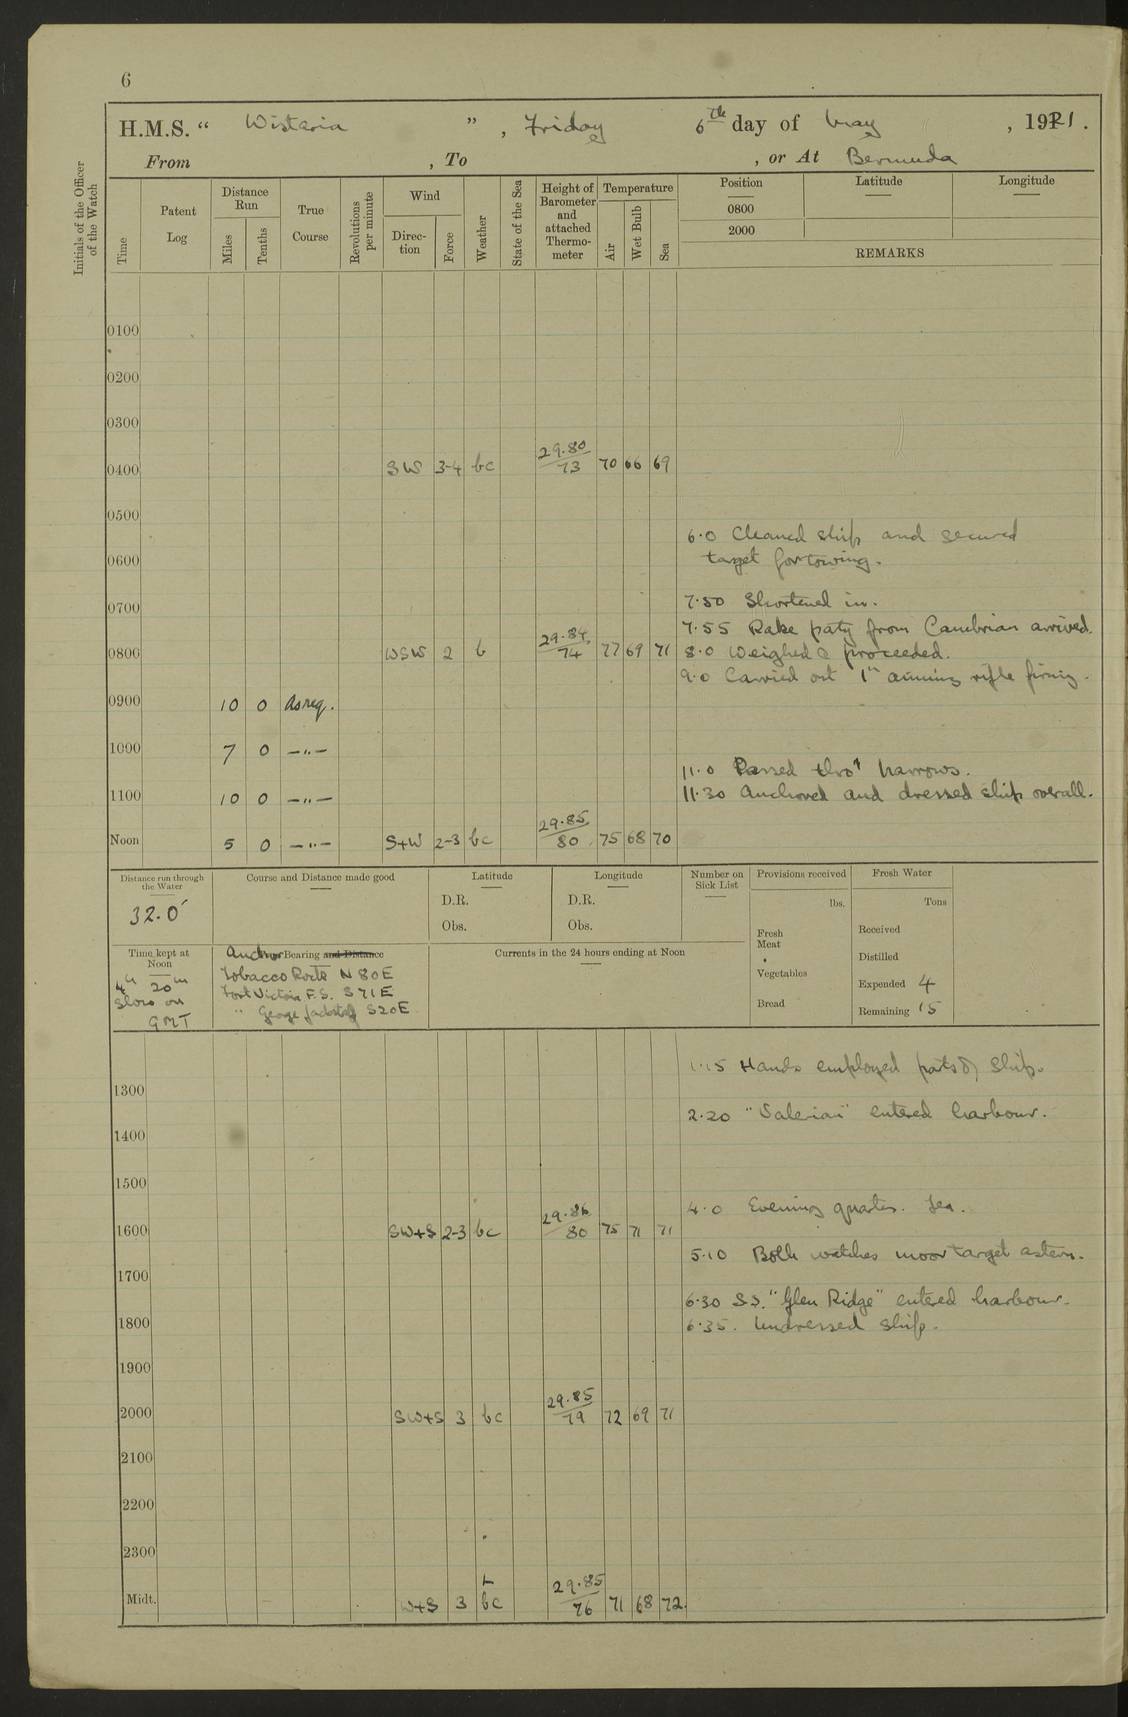 6
H.M.S. “ Wistaria ” , Friday 6th day of May , 1921 .
From , To , or At Bermuda
Initials of the Officer of the Watch
Time
Patent Log
Distance Run
Miles
Tenths
True Course
Revolutions per minute
Wind
Direc- tion
Force
Weather
State of the Sea
Height of Barometer and attached Thermo- meter
Temperature
Air
Wet Bulb
Sea
Position
Latitude
Longitude
0800
2000
REMARKS
0100
0200
0300
0400 SW 3-4 bc 29.80 73 70 66 69
0500
6.0 Cleaned ship and secured
0600
target for towing.
0700
7.50 Shortened in.
7.55 Rake paty from Cambrian arrived.
0800 WSW 2 b 29.84 74 77 69 71 8.0 Weighed & proceeded.
9.0 Carried out 1" aiming rifle firing.
0900 10 0 As req.
1000 7 0 —"—
11.0 Passed thro' narrows.
1100 10 0 —"—
11.30 Anchored and dressed ship overall.
Noon 5 0 —"— S+W 2-3 bc 29.85 80 75 68 70
Distance run through the Water
32.0'
Course and Distance made good
Latitude
D.R.
Obs.
Longitude
D.R.
Obs.
Number on Sick List
Provisions received
lbs.
Fresh Meat
Vegetables
Bread
Fresh Water
Tons
Received
Distilled
Expended 4
Remaining 15
Time kept at Noon
4h 20m
Slow on
GMT
Anchor Bearing and Distance
Tobacco Rocks N 80 E
Fort Victoria F.S. S 71 E
" George Jackstaff S 20 E
Currents in the 24 hours ending at Noon
1.15 Hands employed parts of ship.
1300
2.20 "Valerian" entered harbour.
1400
1500
4.0 Evening quarters. Sea.
1600 SW+S 2-3 bc 29.86 80 75 71 71
5.10 Both watches moor target astern.
1700
6.30 S.S. "Glen Ridge" entered harbour.
1800 6.35. Undressed ship.
1900
2000 SW+S 3 bc 29.85 79 72 69 71
2100
2200
2300
Midt. W+S 3 bc 29.85 76 71 68 72.